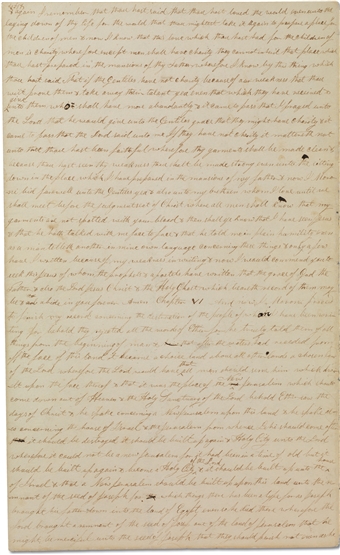 again I remember that thou hast said that thou hast loved the world even unto the
laying down of thy life for the world that thou mightest take it again to prepare a place for
the children of men & now I know that this love which thou hast had for the children of
men is charity wherefore except men shall have charity they cannot inherit that place which
thou hast prepared in the mansions of thy father wherefore I know by this thing which
thou hast said that if the Gentiles have not charity because of our weakness that thou
wilt prove them & take away their talent yea even that which they have received & give
unto them who shall have more abundantly & it came to pass that I prayed unto
the Lord that he would give unto the Gentiles grace that they might have charity & it
came to pass that the Lord said unto me If they have not charity it mattereth not
unto thee thou hast been faithful wherefore thy garments shall be made clean &
because thou hast seen thy weakness thou shalt be made strong even unto the sitting
down in the place which I have prepared in the mansions of my father & now I
bid farewell unto the Gentiles yea & also unto my brethren whom I love until we
shall meet before the judgment seat of Christ where all men shall know that my
garments are not spotted with your blood & then shall ye know that I have seen Jesus
& that he hath talked with me face to face & that he told me in plain humility even
as a man telleth another in mine own language concerning these things & only a few
have I written because of my weakness in writing & now I would commend you to
seek this Jesus of whom the prophets & apostles have written that the grace of God the
father & also the Lord Jesus Christ & the Holy Ghost which beareth record of them may
be & abide in you forever Amen Chapter VI
for behold they rejected all the words of Ether for he truly told them of all
things from the beginning of man & that after the waters had receded from
off the face of this land it became a choice land above all other lands a chosen land
of the Lord wherefore the Lord would have that all men should serve him which dwell
upon the face thereof & that it was the place of the New Jerusalem which should
come down out of Heaven & the Holy Sanctuary of the Lord behold Ether saw the
days of Christ & he spake concerning a New Jerusalem upon this land & he spake also
concerning the house of Israel & the Jerusalem from whence Lehi should come after
it should be destroyed it should be built up again a Holy City unto the Lord
wherefore it could not be a new Jerusalem for it had been in a time of old but it
should be built up again & become a Holy City of the Lord & it should be built up unto the house
of Israel & that a New Jerusalem should be built up upon this land unto the re
mnant of the seed of Joseph for which things there has been a type for as Joseph
brought his father down into the land of Egypt even so he died there wherefore the
Lord brought a remnant of the seed of Joseph out of the land of Jerusalem that he
might be merciful unto the seed of Joseph that they should perish not even as he